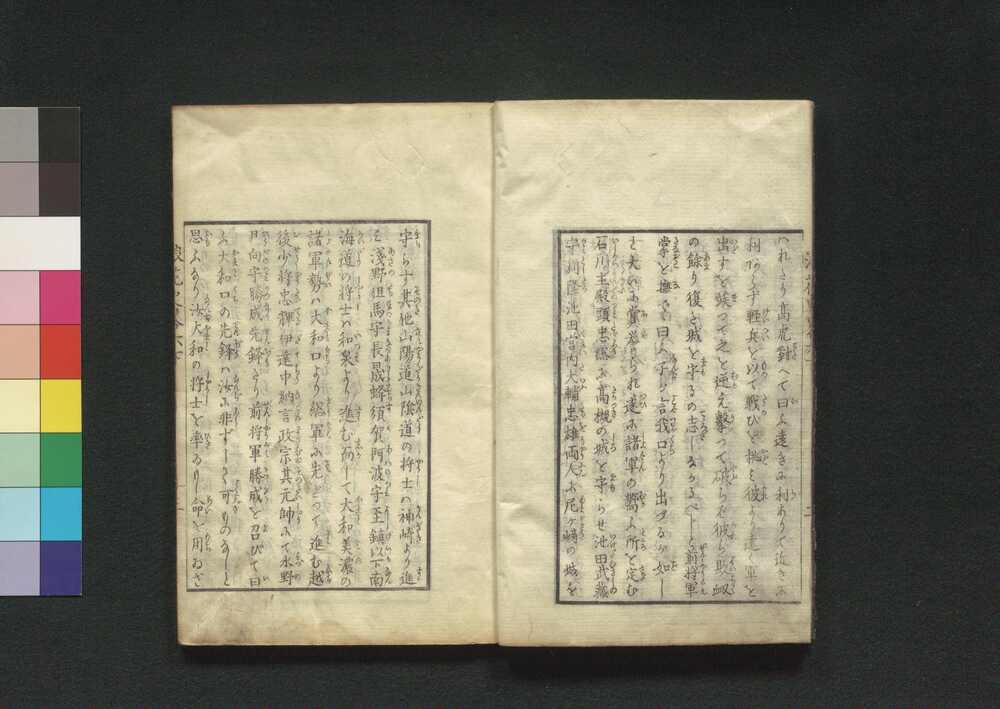 れより高虎對へて曰く遠きに利ありて近きに
利あらず軽兵を以て戦ひを挑み彼より遠く軍を
出すを誘つて之を逆え撃つて破らば彼ら敗衂
の餘り復た城を守るの志しなかるべしと前将軍
掌を撫て曰く子の言我口より出づるが如し
と大いに賞誉せられ遂に諸軍の嚮ふ所を定む
石川主殿頭忠總に高槻の城を守らせ池田武藏
守利隆池田宮内大輔忠雄両人に尼ヶ崎の城を
守らす其他山陽道山陰道の将士は神崎より進
み淺野但馬守長晟蜂須賀阿波守至鎮以下南
海道の将士は和泉より進む而して大和美濃の
諸軍勢は大和口より總軍に先だつて進む越
後少将忠輝伊達中納言政宗其元帥にて水野
日向守勝成先鋒たり前将軍勝成を召びて曰
く大和口の先鋒は汝に非ずして可ものなしと
思ふなり汝大和の将士を率ゐり命を用ゐざ